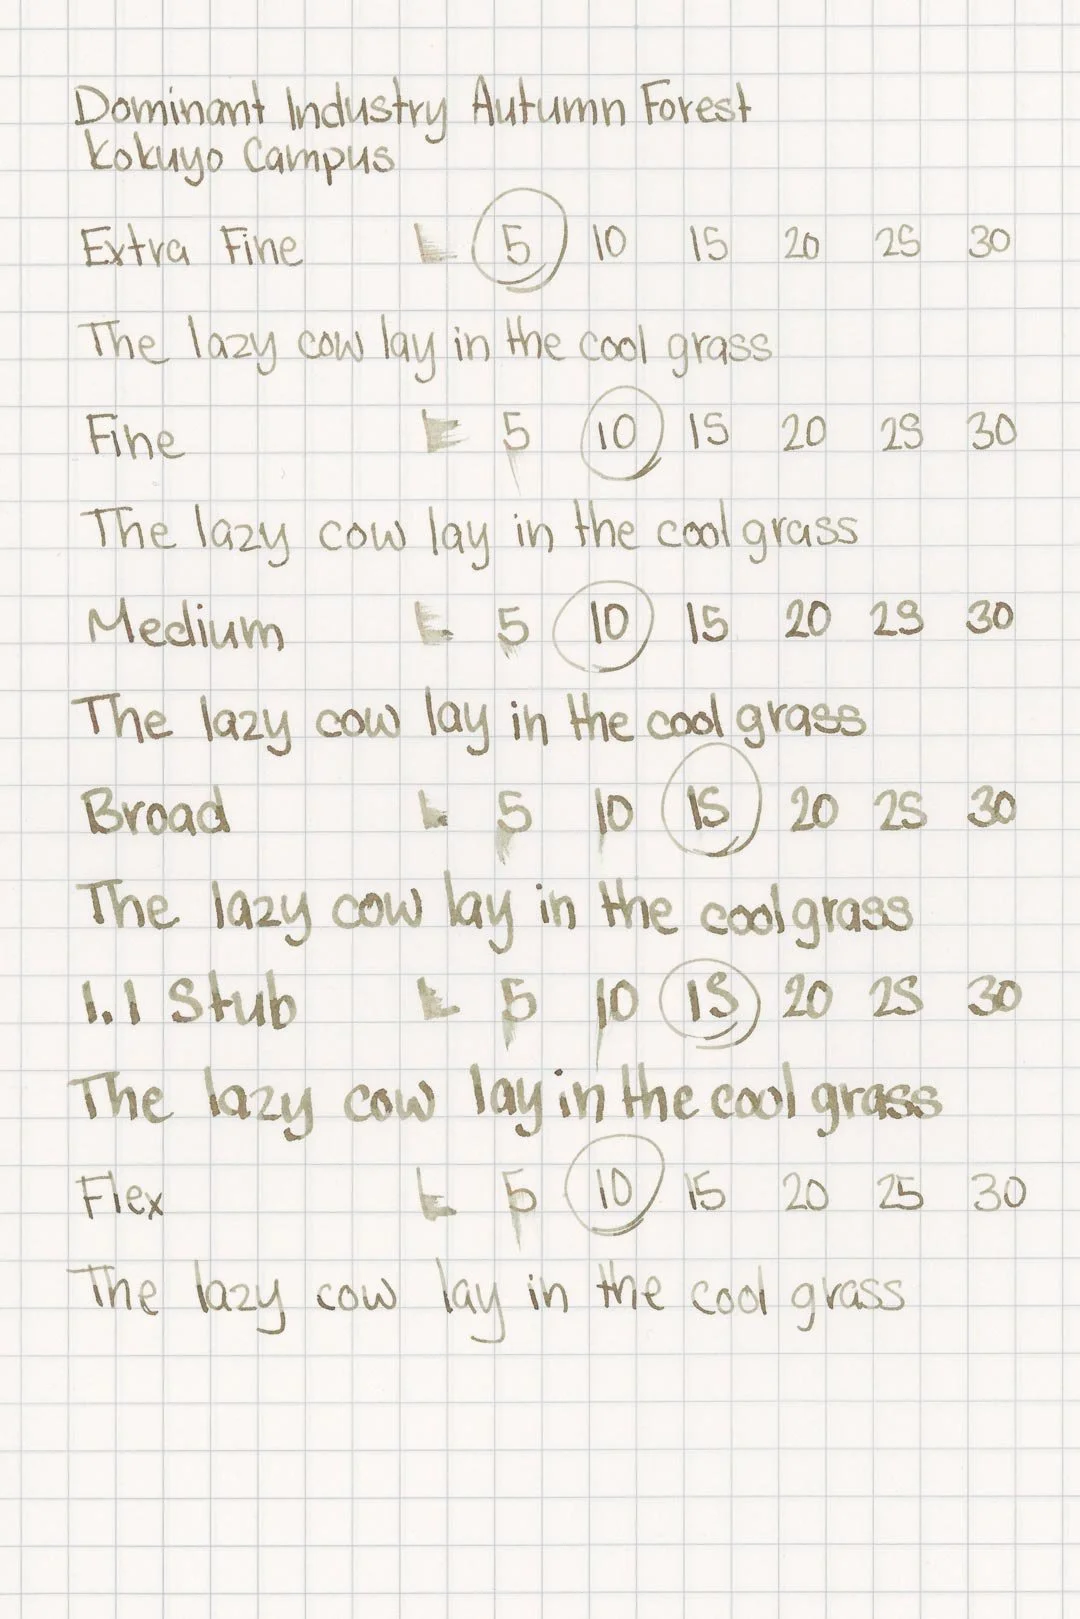 Dominant Industry Autumn Forest
Kokuyo Campus
Extra Fine 5 10 15 20 25 30
The lazy cow lay in the cool grass
Fine 5 10 15 20 25 30
The lazy cow lay in the cool grass
Medium 5 10 15 20 25 30
The lazy cow lay in the cool grass
Broad 5 10 15 20 25 30
The lazy cow lay in the cool grass
1.1 Stub 5 10 15 20 25 30
The lazy cow lay in the cool grass
Flex 5 10 15 20 25 30
The lazy cow lay in the cool grass